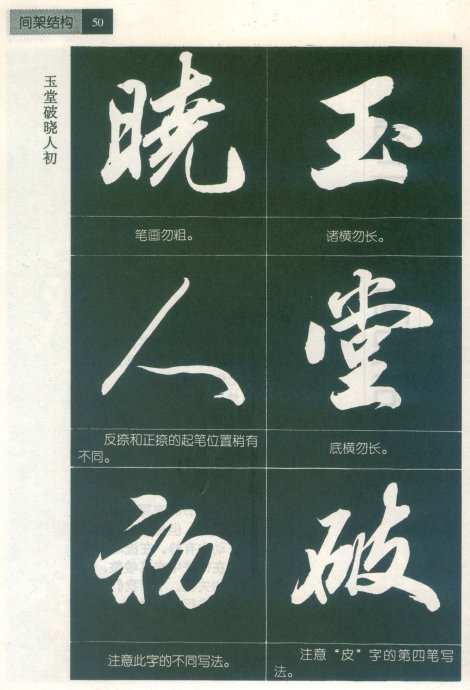 间架结构 50
玉堂破晓人初
玉
诸横勿长。
堂
底横勿长。
破
注意“皮”字的第四笔写
法。
晓
笔画勿粗。
人
反捺和正捺的起笔位置稍有
不同。
初
注意此字的不同写法。